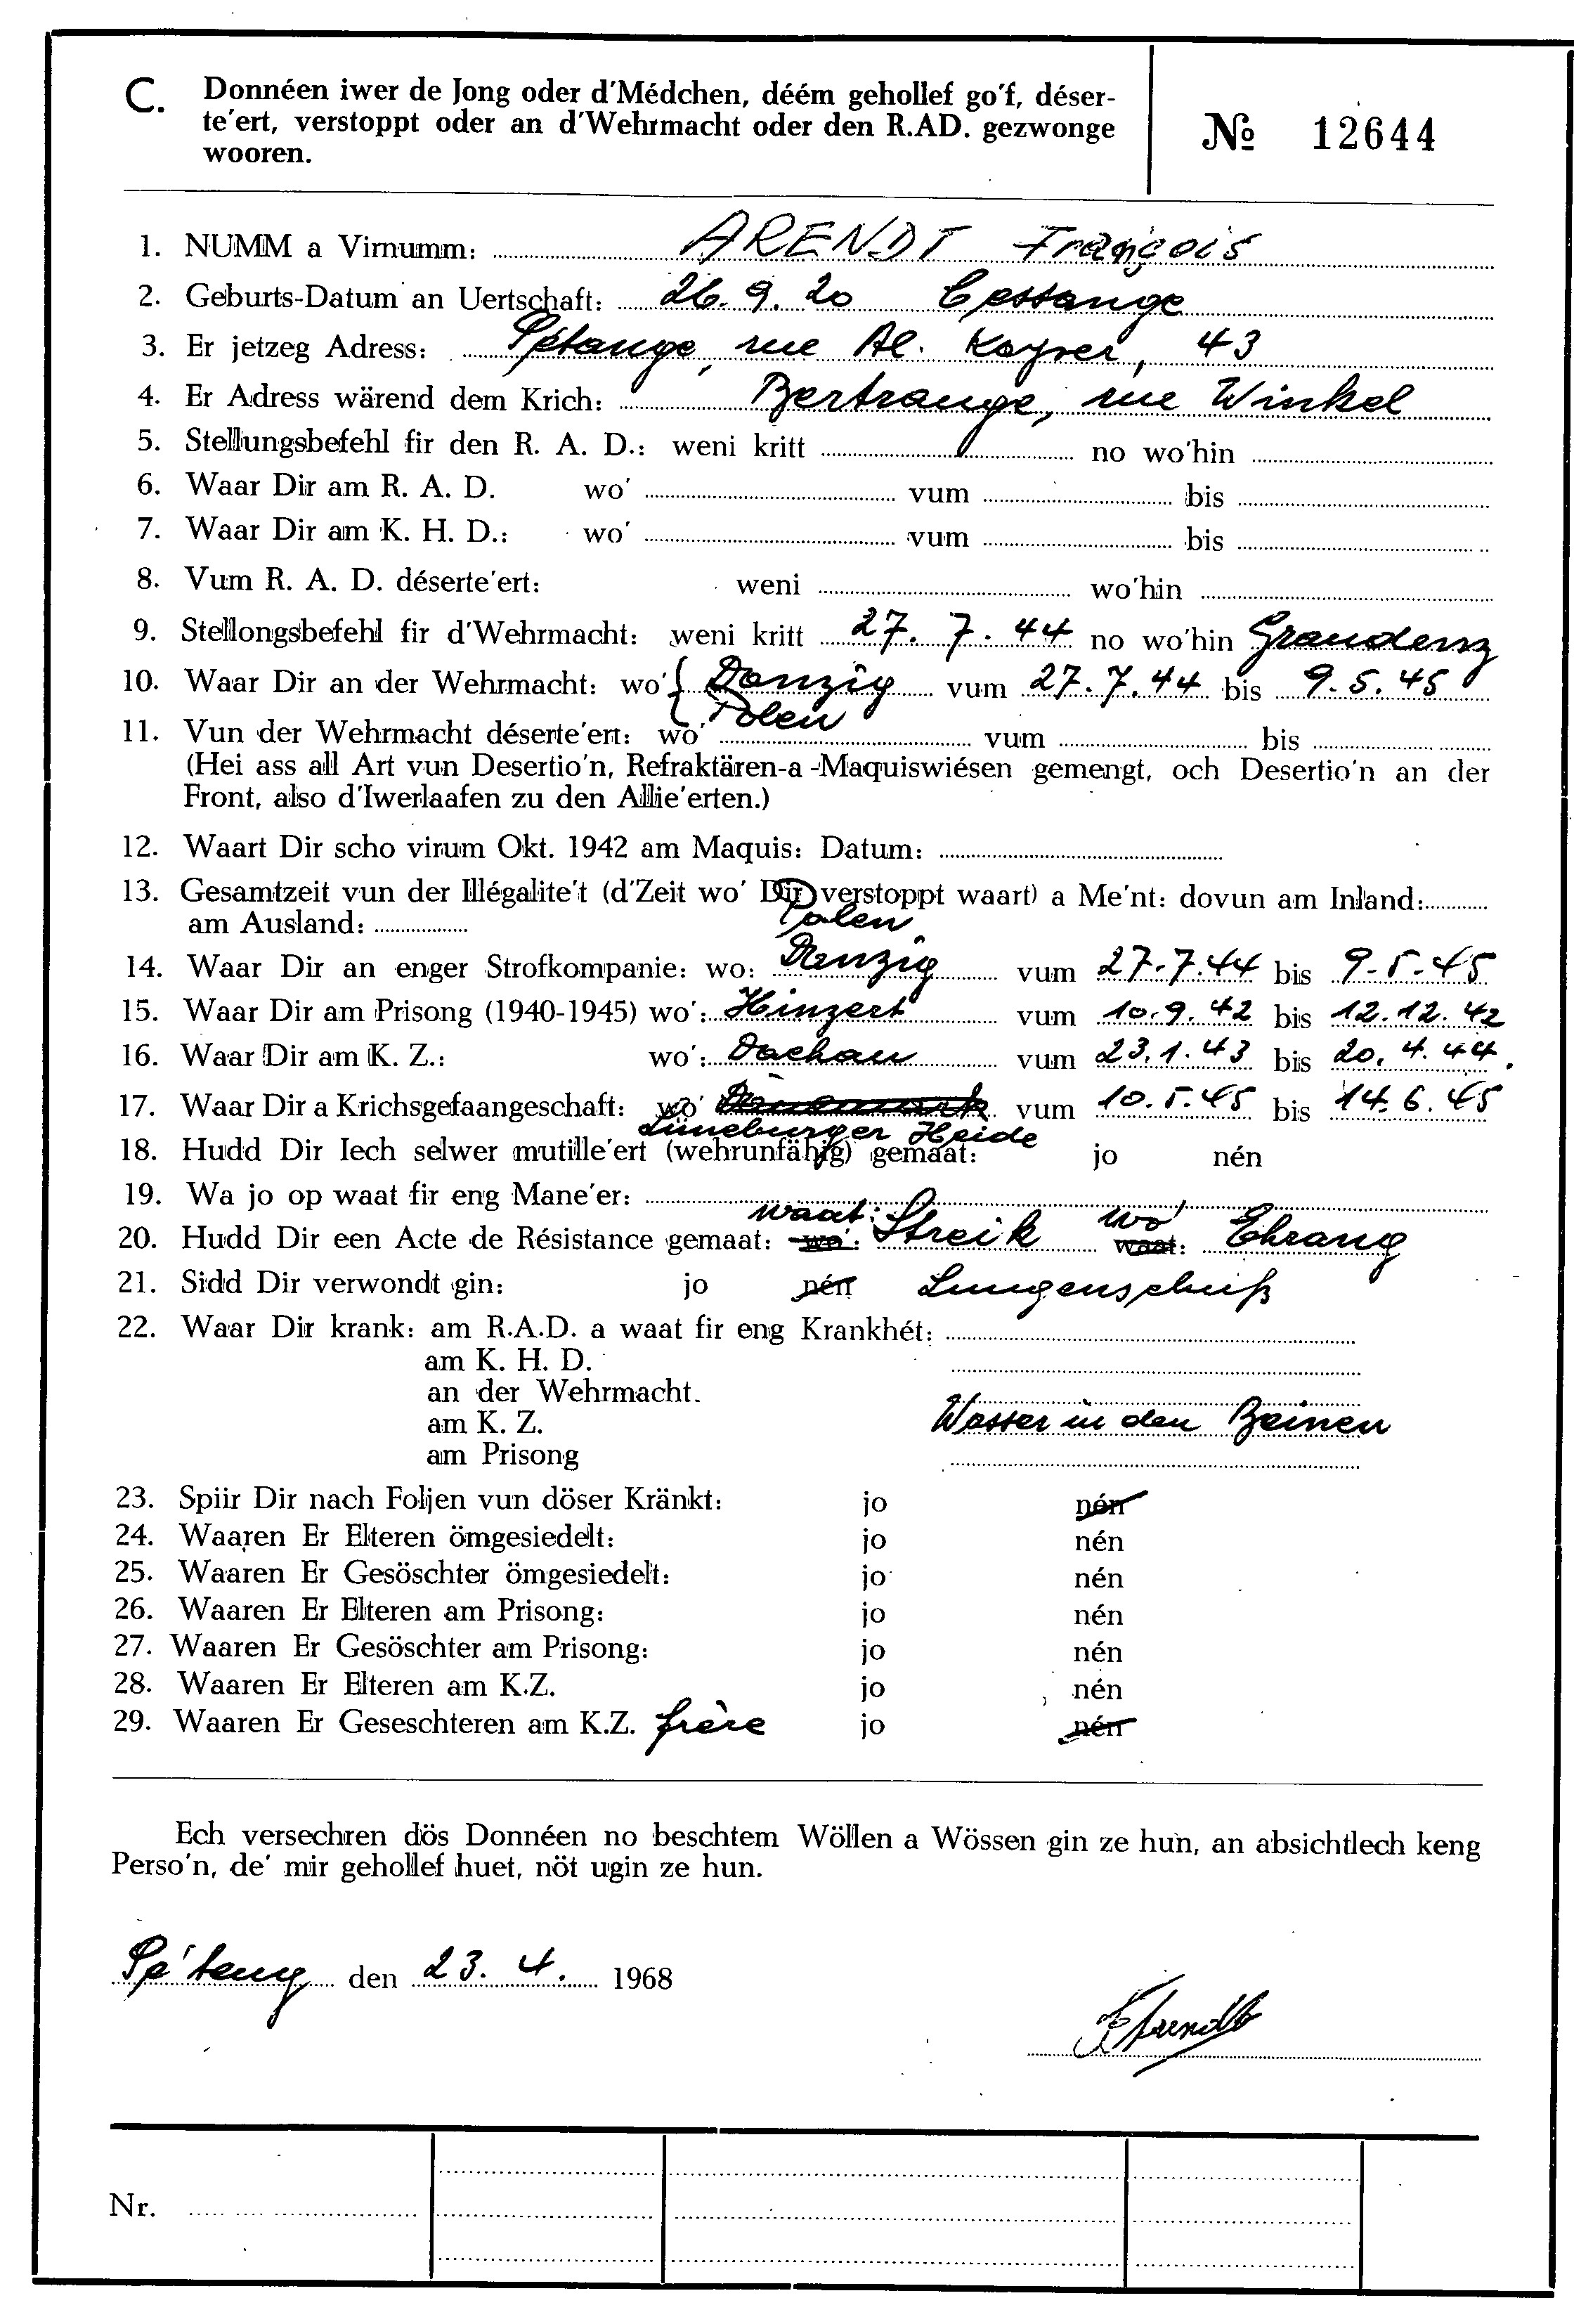 C. Donnéen iwer de Jong oder d'Médchen, déém gehollef go'f, déser-
te'ert, verstoppt oder an d'Wehrmacht oder den R.AD. gezwonge
wooren.
№ 12644
1. NUMM a Virnumm: ARENDT François
2. Geburts-Datum an Uertschaft: 26.9.20 Cessange
3. Er jetzeg Adress: Pétange, rue Al. Kayser, 43
4. Er Adress wärend dem Krich: Bertrange, rue Winkel
5. Stellungsbefehl fir den R. A. D.: weni kritt no wo'hin
6. Waar Dir am R. A. D. wo' vum bis
7. Waar Dir am K. H. D.: wo' vum bis
8. Vum R. A. D. déserte'ert: weni wo'hin
9. Stellongsbefehl fir d'Wehrmacht: weni kritt 27.7.44 no wo'hin Graudenz
10. Waar Dir an der Wehrmacht: wo' Danzig vum 27.7.44 bis 9.5.45
Polen
11. Vun der Wehrmacht déserte'ert: wo' vum bis
(Hei ass all Art vun Desertio'n, Refraktären-a-Maquiswiésen gemengt, och Desertio'n an der
Front, also d'Iwerlaafen zu den Allie'erten.)
12. Waart Dir scho virum Okt. 1942 am Maquis: Datum:
13. Gesamtzeit vun der Illégalite't (d'Zeit wo' Dir verstoppt waart) a Me'nt: dovun am Inland:
am Ausland:
Polen
14. Waar Dir an enger Strofkompanie: wo: Danzig vum 27.7.44 bis 9.5.45
15. Waar Dir am Prisong (1940-1945) wo': Hinzert vum 10.9.42 bis 12.12.42
16. Waar Dir am K. Z.: wo': Dachau vum 23.1.43 bis 20.4.44.
17. Waar Dir a Krichsgefaangeschaft: wo' Dänemark vum 10.5.45 bis 14.6.45
Lüneburger Heide
18. Hudd Dir Iech selwer mutille'ert (wehrunfähig) gemaat: jo nén
19. Wa jo op waat fir eng Mane'er:
waat: wo'
20. Hudd Dir een Acte de Résistance gemaat: wo': Streik waat: Ehrang
21. Sidd Dir verwondt gin: jo nén Lungenschuß
22. Waar Dir krank: am R.A.D. a waat fir eng Krankhét:
am K. H. D.
an der Wehrmacht.
am K. Z. Wasser in den Beinen
am Prisong
23. Spiir Dir nach Foljen vun döser Kränkt: jo nén
24. Waaren Er Elteren ömgesiedelt: jo nén
25. Waaren Er Gesöschter ömgesiedelt: jo nén
26. Waaren Er Elteren am Prisong: jo nén
27. Waaren Er Gesöschter am Prisong: jo nén
28. Waaren Er Elteren am K.Z. jo nén
29. Waaren Er Geseschteren am K.Z. frère jo nén
Ech versechren dös Donnéen no beschtem Wöllen a Wössen gin ze hun, an absichtlech keng
Perso'n, de' mir gehollef huet, nöt ugin ze hun.
Pé'teng den 23. 4. 1968
F Arendt
Nr.